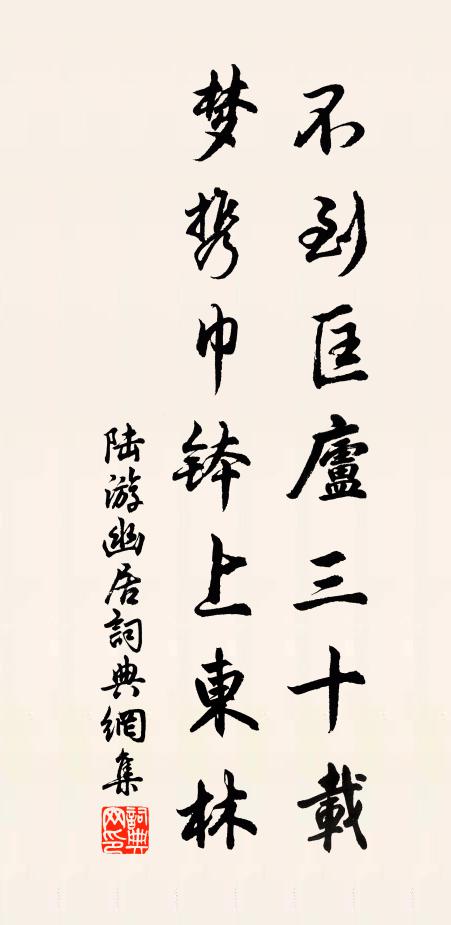 不到匡廬三十載
梦携巾钵上東林
陆游幽居詞典網集
詞典
网印